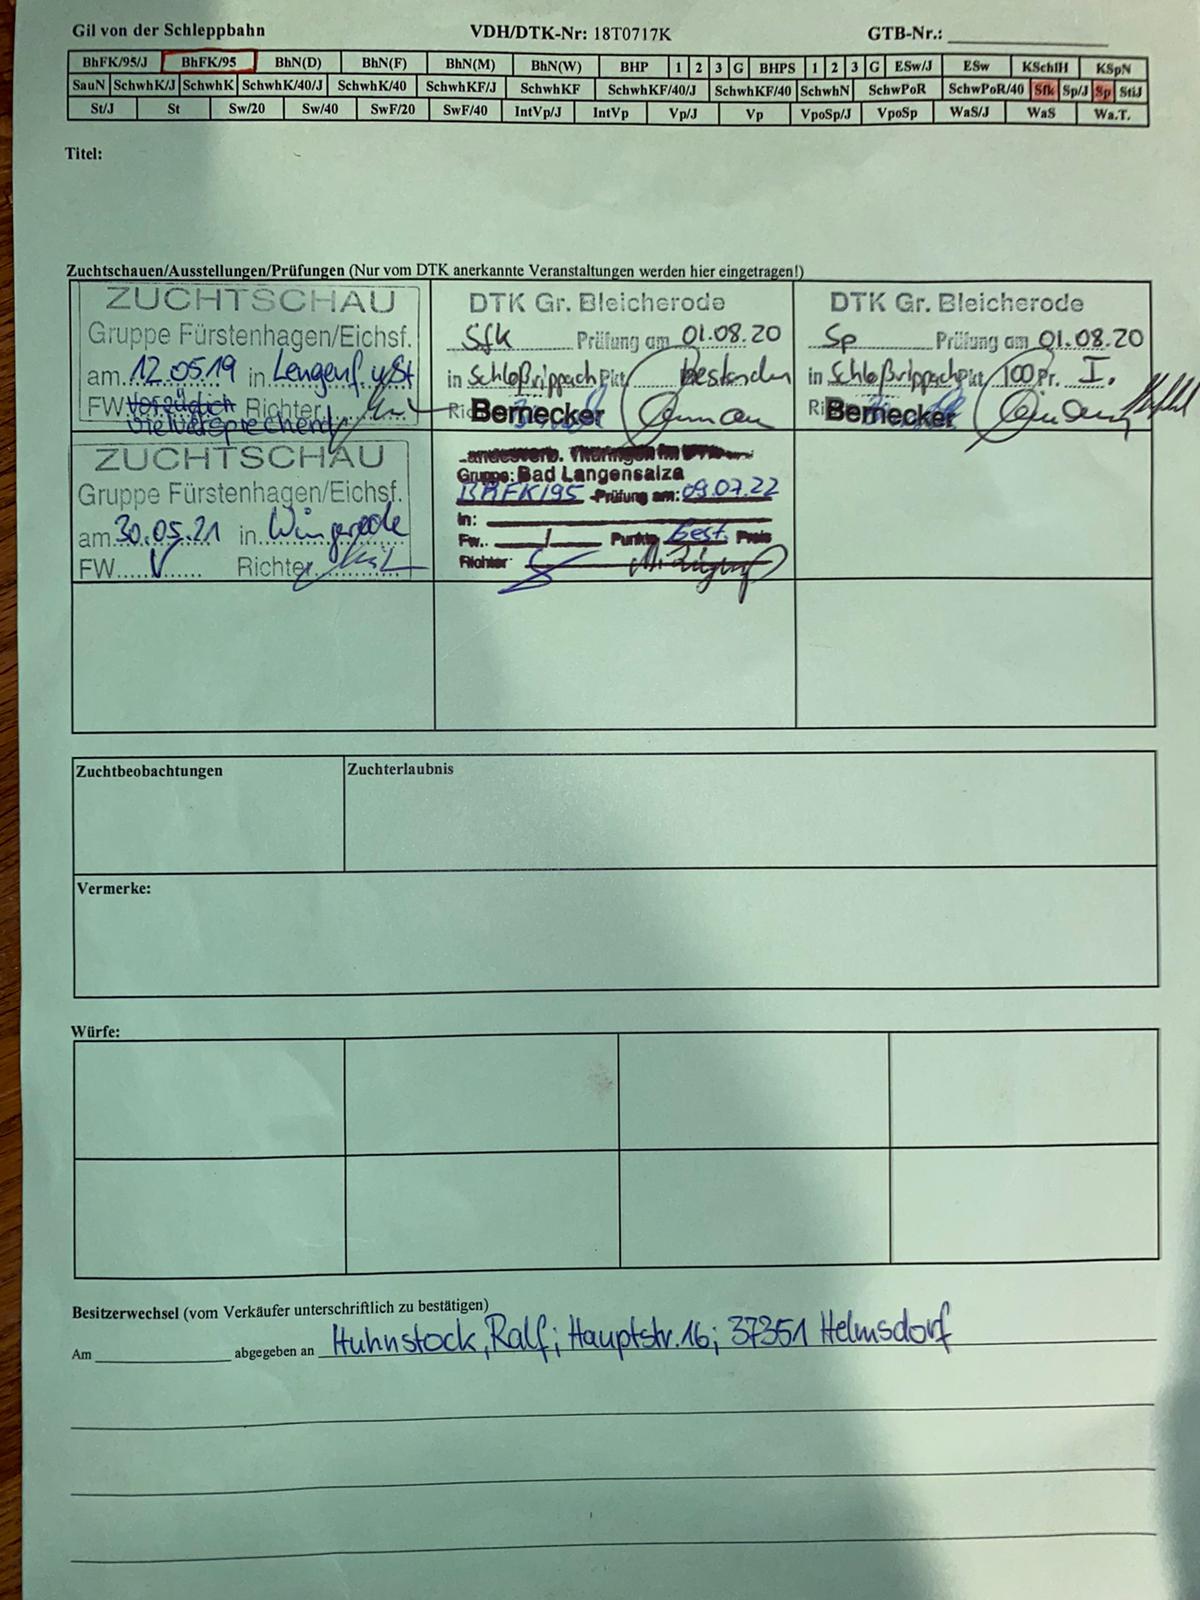 Gil von der Schleppbahn VDH/DTK-Nr: 18T0717K GTB-Nr.:
BhFK/95/J BhFK/95 BhN(D) BhN(F) BhN(M) BhN(W) BHP 1 2 3 G BHPS 1 2 3 G ESw/J ESw KSchlH KSpN
SauN SchwhK/J SchwhK SchwhK/40/J SchwhK/40 SchwhKF/J SchwhKF SchwhKF/40/J SchwhKF/40 SchwhN SchwPoR SchwPoR/40 Sfk Sp/J Sp StiJ
St/J St Sw/20 Sw/40 SwF/20 SwF/40 IntVp/J IntVp Vp/J Vp VpoSp/J VpoSp WaS/J WaS Wa.T.
Titel:
Zuchtschauen/Ausstellungen/Prüfungen (Nur vom DTK anerkannte Veranstaltungen werden hier eingetragen!)
ZUCHTSCHAU
Gruppe Fürstenhagen/Eichsf.
am 12.05.19 in Lengenf. u/St
FW vorzüglich Richter
vielversprechend
DTK Gr. Bleicherode
Sfk Prüfung am 01.08.20
in Schloßvippach Pkt bestanden
Bernecker
DTK Gr. Bleicherode
Sp Prüfung am 01.08.20
in Schloßvippach Pkt 100 Pr. I.
Bernecker
ZUCHTSCHAU
Gruppe Fürstenhagen/Eichsf.
am 30.05.21 in Wingerode
FW V Richter
Gruppe: Bad Langensalza
BhFK/95 -Prüfung am: 09.07.22
In:
Fw. / Punkte Best. Preis
Richter
Zuchtbeobachtungen Zuchterlaubnis
Vermerke:
Würfe:
Besitzerwechsel (vom Verkäufer unterschriftlich zu bestätigen)
Am abgegeben an Huhnstock, Ralf; Hauptstr. 16; 37351 Helmsdorf